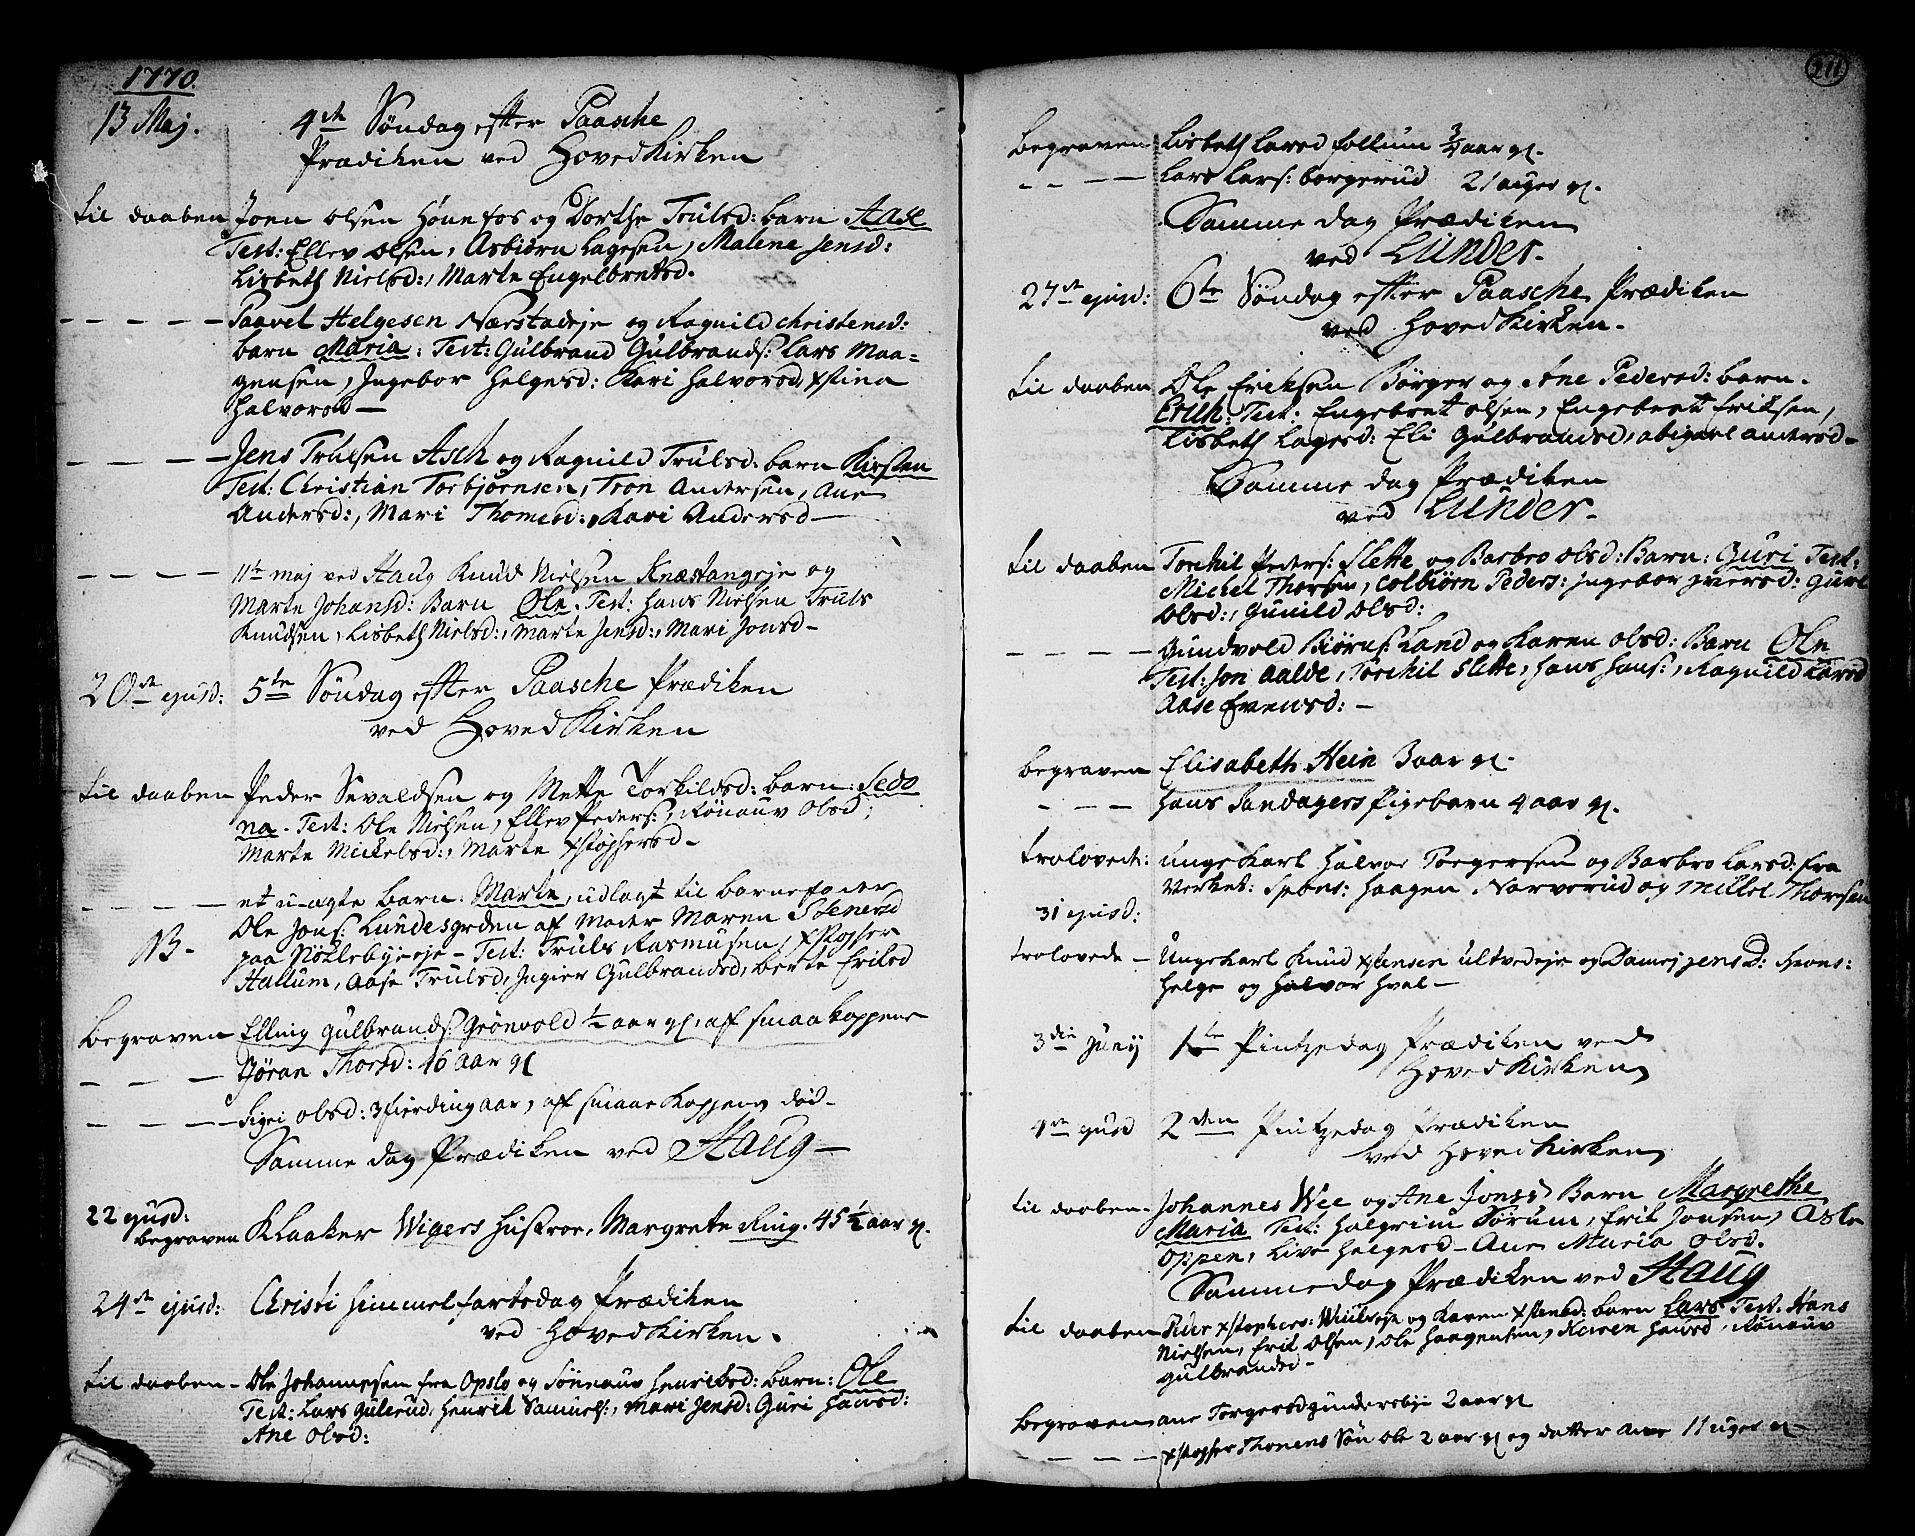 1770.
13 Maj. 4de Søndag efter Paasche
Prædiken ved HovedKirken
til daaben Joen Olsen Hønefos og Dorthe Trulsd: barn Aase
Test: Ellev Olsen, Asbiørn Lagesen, Malene Jensd:
Lisbeth Nielsd:, Marte Engelbretsd.
– – – – Paavel Helgesen Nærstadeje og Ragnild Christensd:
barn Maria: Test: Gulbrand Gulbrands: Lars Maa-
gensen, Ingebor Helgesd: Kari Halvorsd, Xstina
Halvorsd –
– – – – Jens Trulsen Asch og Ragnild Trulsd: barn Kirsten
Test: Christian Torbjørnsen, Tron Andersen, Ane
Andersd:, Mari Thomesd:, Kari Andersd –
– – – – 11te maj ved Haug Knud Nielsen Knæstangeje og
Marte Johansd: Barn Ole. Test: Hans Nielsen Truls
Knudsen, Lisbeth Nielsd:, Marte Jensd:, Mari Jonsd –
20de ejusd: 5te Søndag efter Paasche Prædiken
ved HovedKirken
til daaben Peder Sevaldsen og Mette Torkildsd: barn: Sedo
na. Test: Ole Nielsen, Ellev Peders:, Rønauv Olsd,
Marte Mickelsd:, Marte Xstophersd –
– – – – et u-ægte barn. Marte, udlagt til barnefader
NB – Ole Jons: Lundesgrden af Moder Maren Stenersd
paa Nøklebyeeje – Test: Truls Rasmusen, Xstopher
Hallum, Aase Trulsd, Ingier Gulbrandsd, berte Eriksd
Begraven Elling Gulbrands: Grønvold ½ aar gl. af smaakoppene
– – – Jøran Thorsd: 16 aar gl
– – – – Sigri olsd: 3 fierdingaar, af smaae Koppene død –
Samme dag Prædiken ved Haug –
22 ejusd:
begraven Klaaker Wigers Hustroe, Margrete Ring. 45½ aar gl.
24de ejusd: Christi Himmelfartsdag Prædiken
ved HovedKirken.
til daaben – Ole Johannesen fra Opslo og Sønnauv Henriksd: barn: Ole
Test: Lars Gulerud, Henrik Samuels:, Mari Jensd: Guri Hansd:
Ane Olsd:
211
begraven Lisbeth Larsd follum ¾ aar gl.
– – – – Lars Lars: borgerud 21 uger gl.
Samme dag Prædiken
ved Lunder.
27de ejusd: 6te Søndag efter Paasche Prædiken
ved HovedKirken.
til daaben Ole Ericksen Børger og Ane Pedersd: barn.
Erich: Test: Engebret olsen, Engebret Eriksen,
Lisbeth Lagesd: Eli Gulbrandsd, abigael andersd –
Samme dag Prædiken
ved Lunder.
til daaben Torchil Peders: Slette og Barbro Olsd: Barn: Guri Test:
Mickel Thorsen, Colbiørn Peders: Ingebor Iversd: Guri
Olsd:, Gunild Olsd:
– – – – Gundvold Biørns: Land og Karen olsd: Barn Ole
Test: Jon Aalde, Torchil Slette, Hans Hans:, Ragnild Larsd
Aase Evensd: –
begraven Elisabeth Hein 3 aar gl.
– – – Hans Sandagers Pigebarn 4 aar gl.
trolovede: ungekarl Halvor Torgersen og Barbro Larsd: fra
Verket: Spons: Haagen Narverud og Mikkel Thorsen
31 ejusd:
trolovede – Ungekarl Knud Xstensen ultvedeje og Jensd: Spons:
Helge og Halvor Hval –
3die Junij 1te Pintzedag Prædiken ved
HovedKirken
4de ejusd 2den Pintzedag Prædiken
ved HovedKirken
til daaben – Johannes Wee og Ane Jonsd Barn Margrethe
Maria Test: Halgrim Sørum, Erik Jonsen, Asle
Oppen, Live Helgesd – Ane Maria Olsd.
Samme dag Prædiken ved Haug
til daaben Peder Xstophers: og Karen Xstensd: barn Lars Test: Hans
Nielsen, Erik Olsen, Ole Haagensen, Karen Hansd, Rønauv
Gulbrandsd –
Begraven ane Torgersd gundersbye 2 aar gl
– – – – Xstopher Thonens Søn Ole 2 aar gl og datter Ane 11 uger gl –